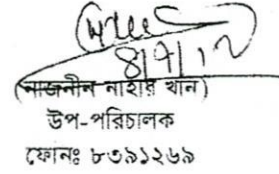 ৪/৭/১২
(নাজনীন নাহার খান)
উপ-পরিচালক
ফোনঃ ৮৩৯১২৬৯